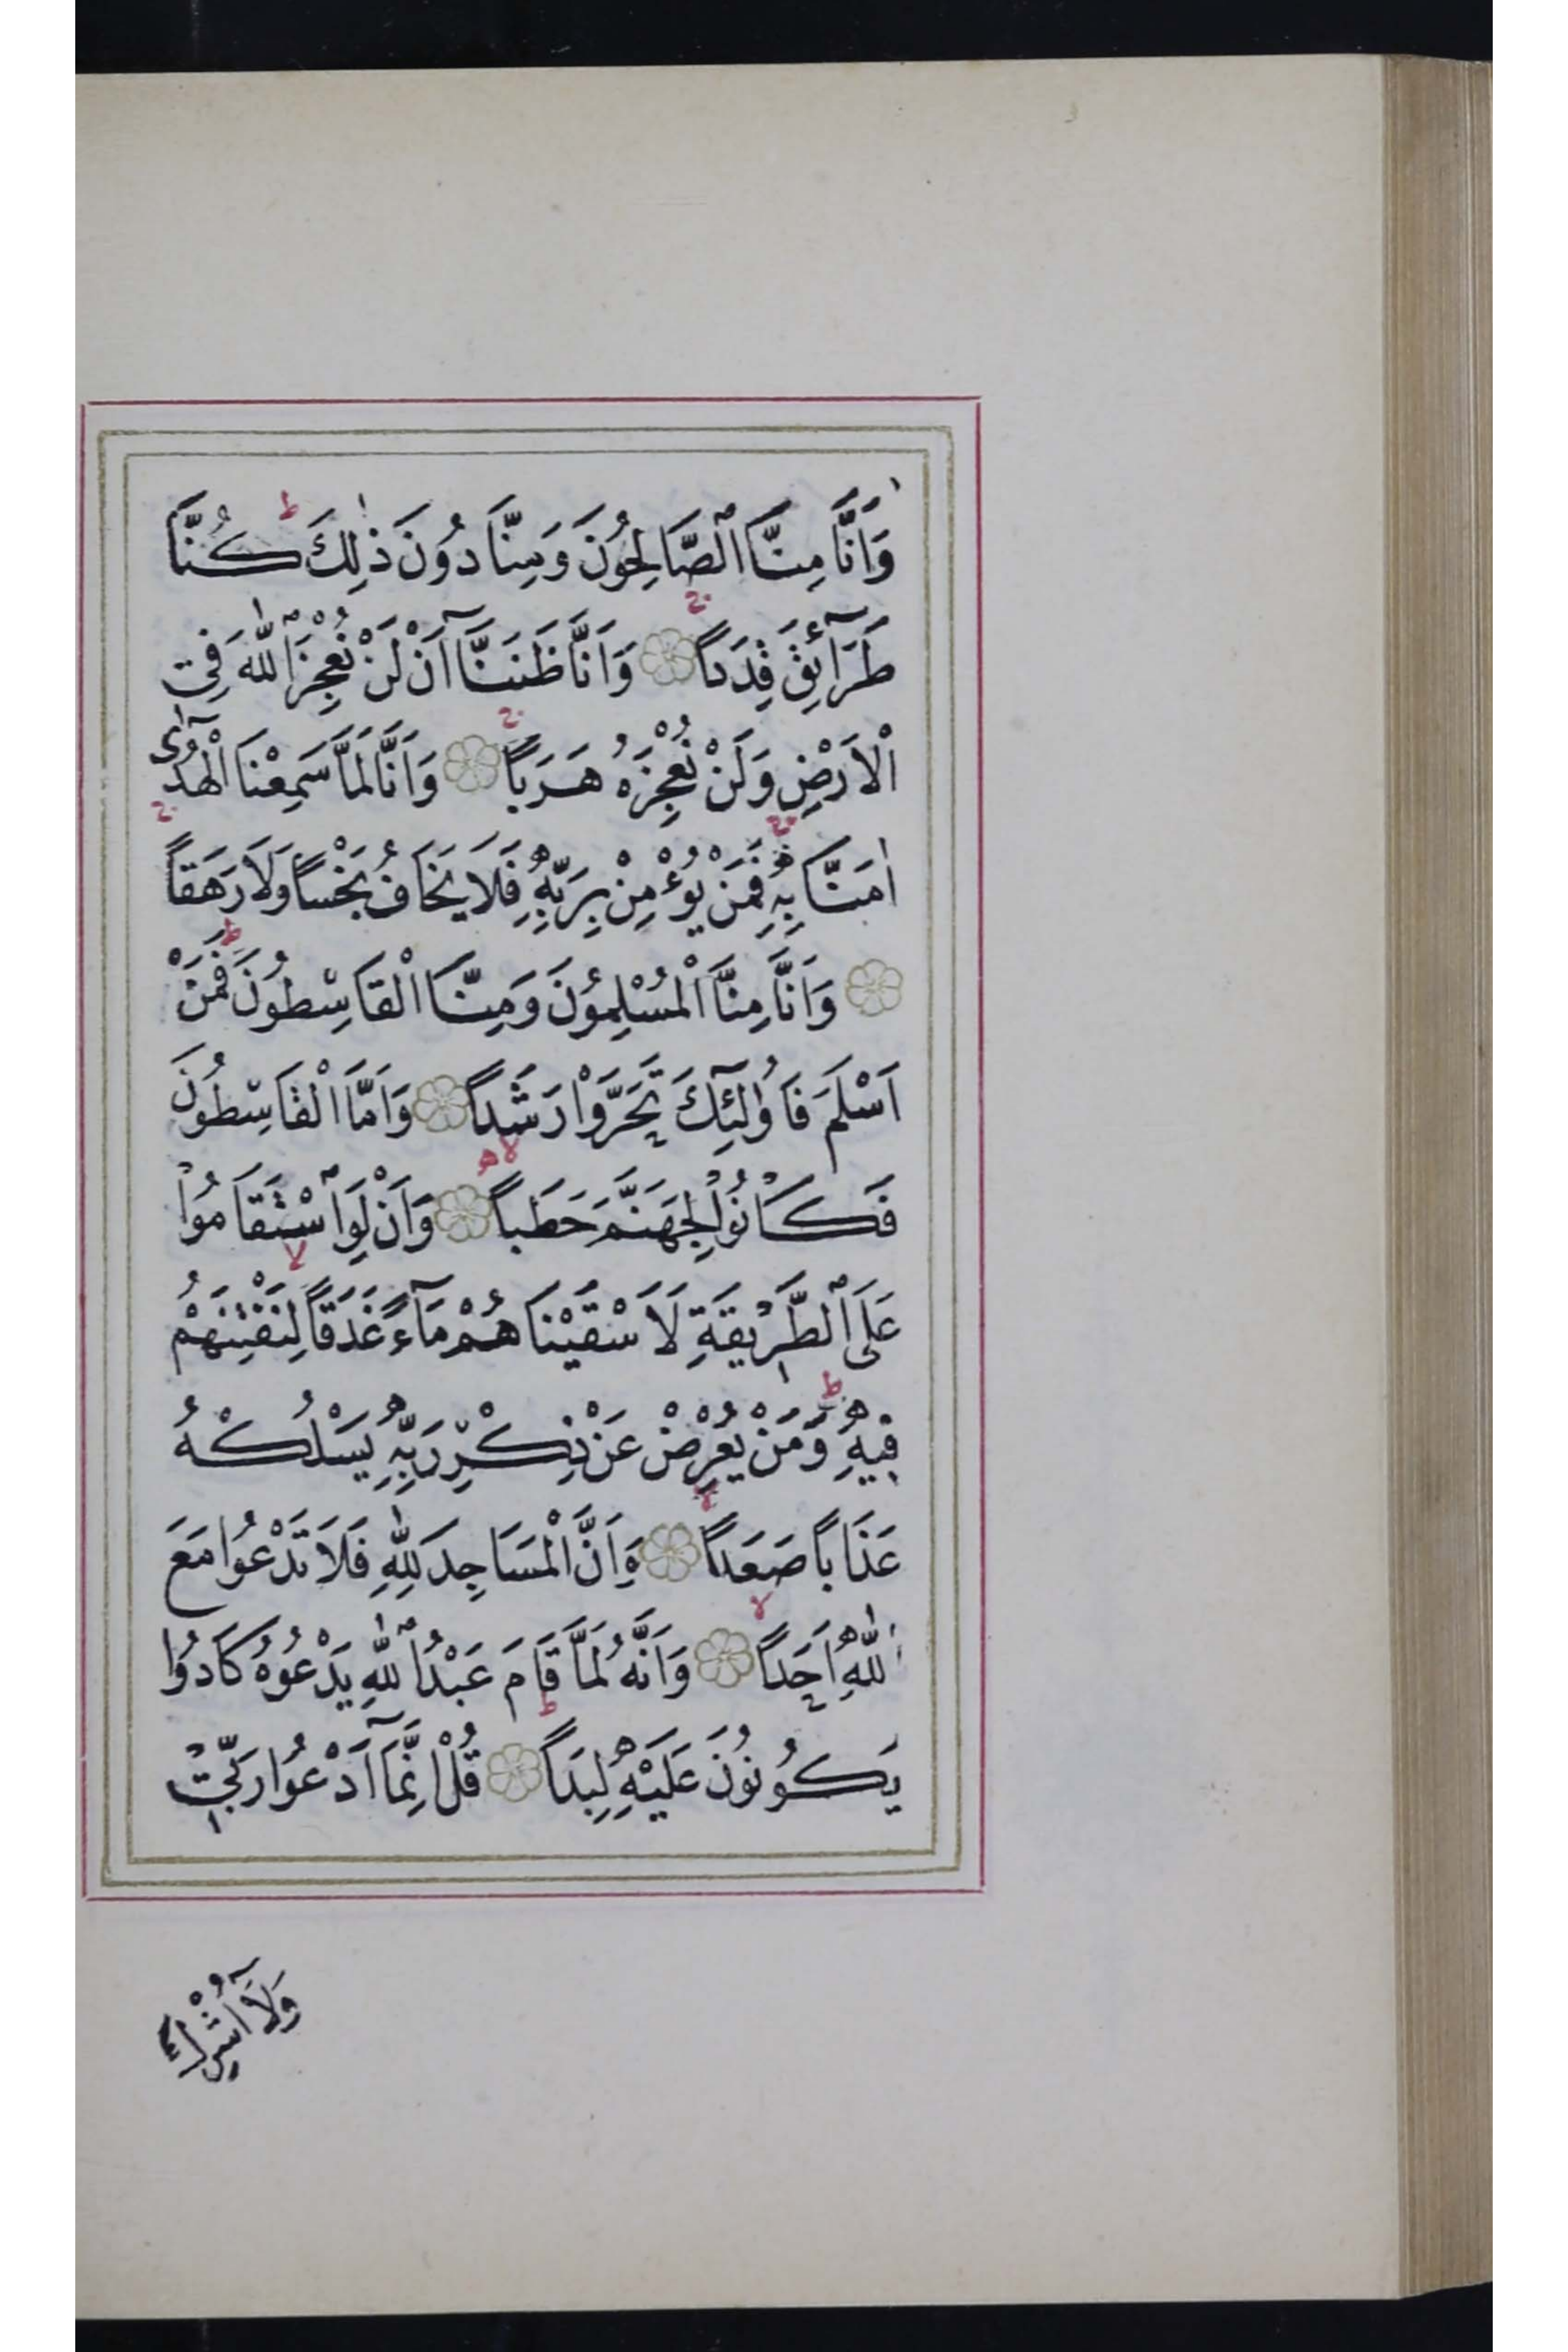 وَاَنَّا مِنَّا الصَّالِحُونَ وَمِنَّا دُونَ ذٰلِكَ ط كُنَّا
طَرَآئِقَ قِدَداً وَاَنَّا ظَنَنَّآ اَنْ لَنْ نُعْجِزَ اللّٰهَ فِي
الْاَرْضِ وَلَنْ نُعْجِزَهُ هَرَباً وَاَنَّا لَمَّا سَمِعْنَا الْهُدٰٓى
اٰمَنَّا بِهِ فَمَنْ يُؤْمِنْ بِرَبِّهِ فَلَا يَخَافُ بَخْساً وَلَا رَهَقاً
وَاَنَّا مِنَّا الْمُسْلِمُونَ وَمِنَّا الْقَاسِطُونَ ط فَمَنْ
اَسْلَمَ فَاُولٰٓئِكَ تَحَرَّوْا رَشَداً وَاَمَّا الْقَاسِطُونَ
فَكَانُوا لِجَهَنَّمَ حَطَباً وَاَنْ لَوِ اسْتَقَامُوا
عَلَى الطَّرِيقَةِ لَاَسْقَيْنَاهُمْ مَآءً غَدَقاً لا لِنَفْتِنَهُمْ
فِيهِ ط وَمَنْ يُعْرِضْ عَنْ ذِكْرِ رَبِّهِ يَسْلُكْهُ
عَذَاباً صَعَداً وَاَنَّ الْمَسَاجِدَ لِلّٰهِ فَلَا تَدْعُوا مَعَ
اللّٰهِ اَحَداً وَاَنَّهُ لَمَّا قَامَ عَبْدُ اللّٰهِ يَدْعُوهُ كَادُوا
يَكُونُونَ عَلَيْهِ لِبَداً قُلْ اِنَّمَآ اَدْعُوا رَبِّي
وَلَآ اُشْرِكُ